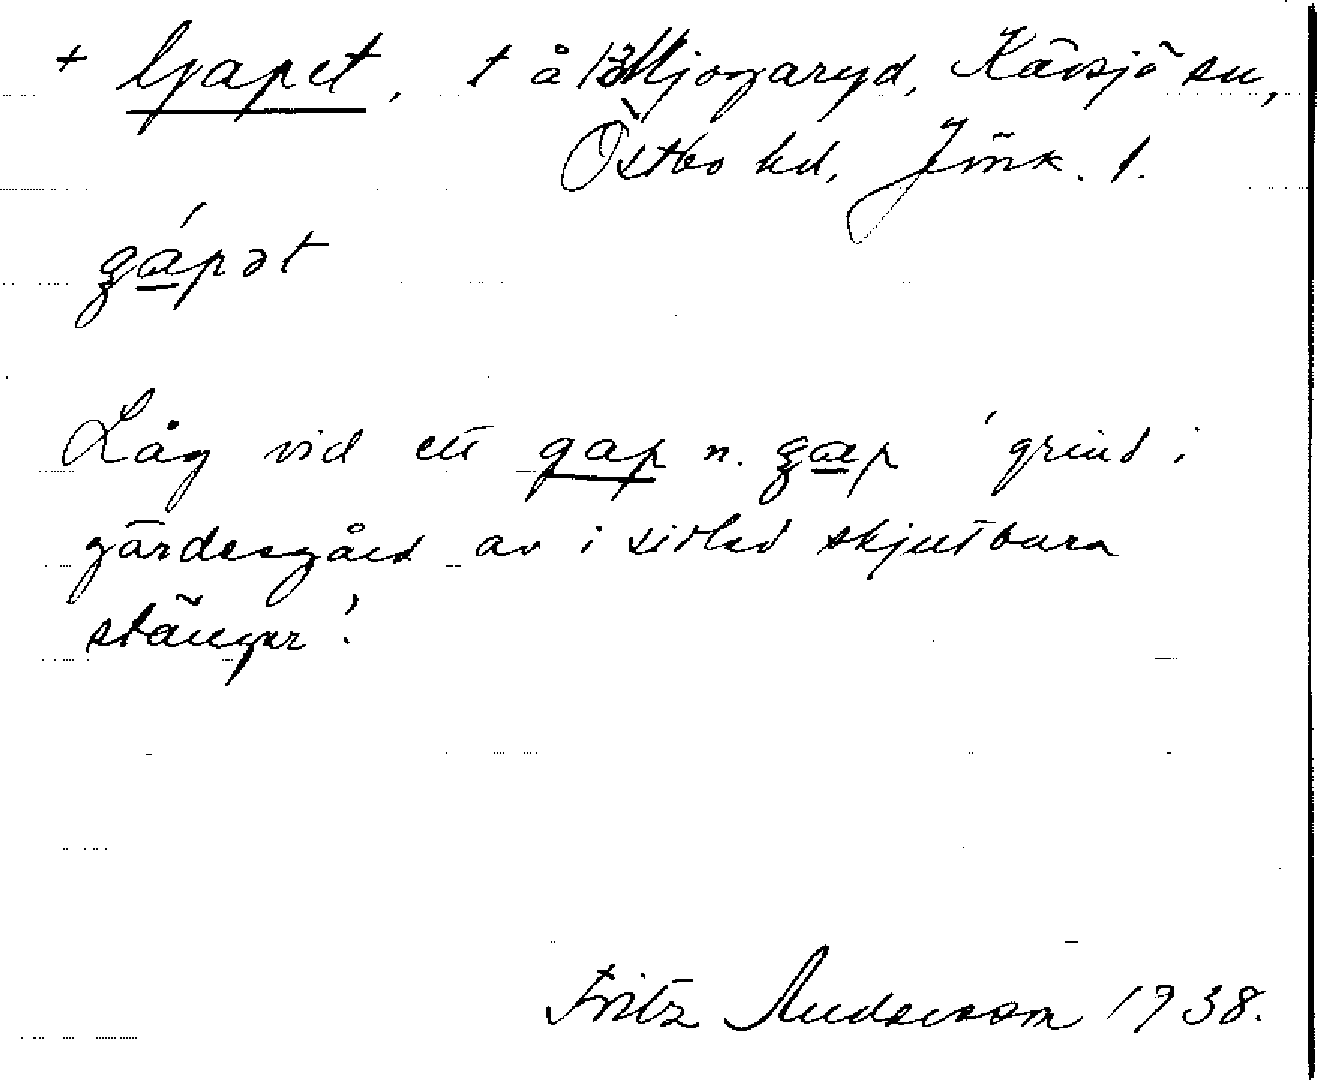 + Gapet, t å 13 Mjogaryd, Kävsjö sn,
Östbo hd, Jönk. l.
gápət
Låg vid ett gap n. gap 'grind i
gärdesgård av i sidled skjutbara
stänger'.
Fritz Andersson 1938.